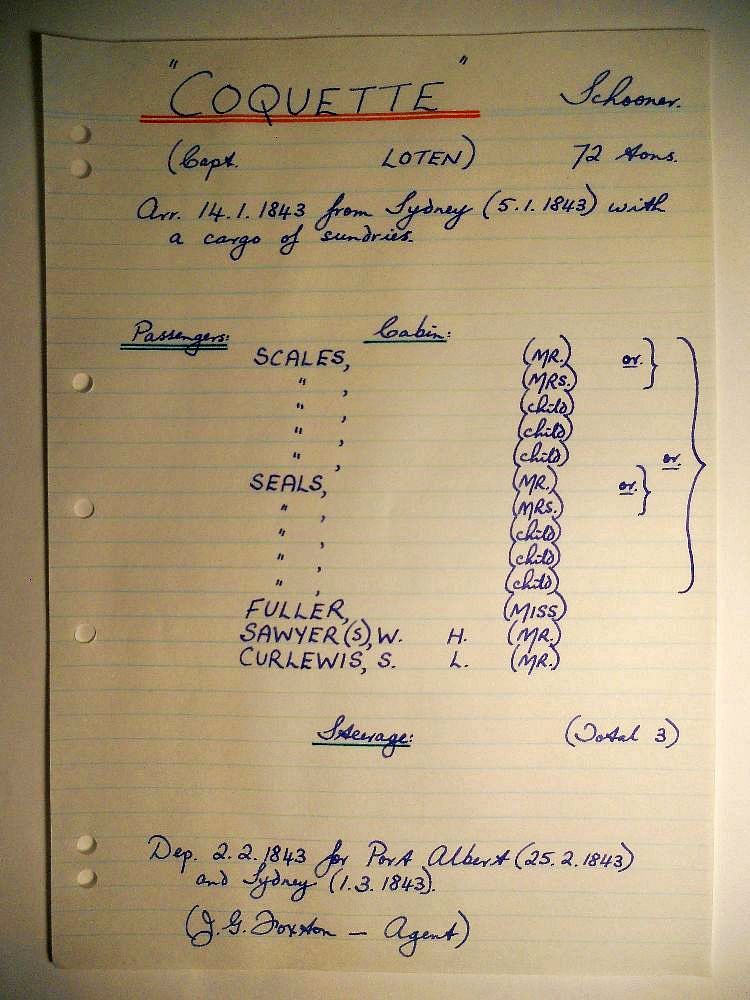 "COQUETTE" Schooner.
(Capt. LOTEN) 72 tons.
Arr. 14.1.1843 from Sydney (5.1.1843) with
a cargo of sundries.
Passengers: Cabin:
SCALES, (MR.) or. }
" , (MRS.)
" , (child)
" , (child)
" , (child) or.
SEALS, (MR.) or. }
" , (MRS.)
" , (child)
" , (child)
" , (child)
FULLER, (MISS)
SAWYER(S), W. H. (MR.)
CURLEWIS, S. L. (MR.)
Steerage: (Total 3)
Dep. 2.2.1843 for Port Albert (25.2.1843)
and Sydney (1.3.1843).
(J.G. Foxton — Agent)